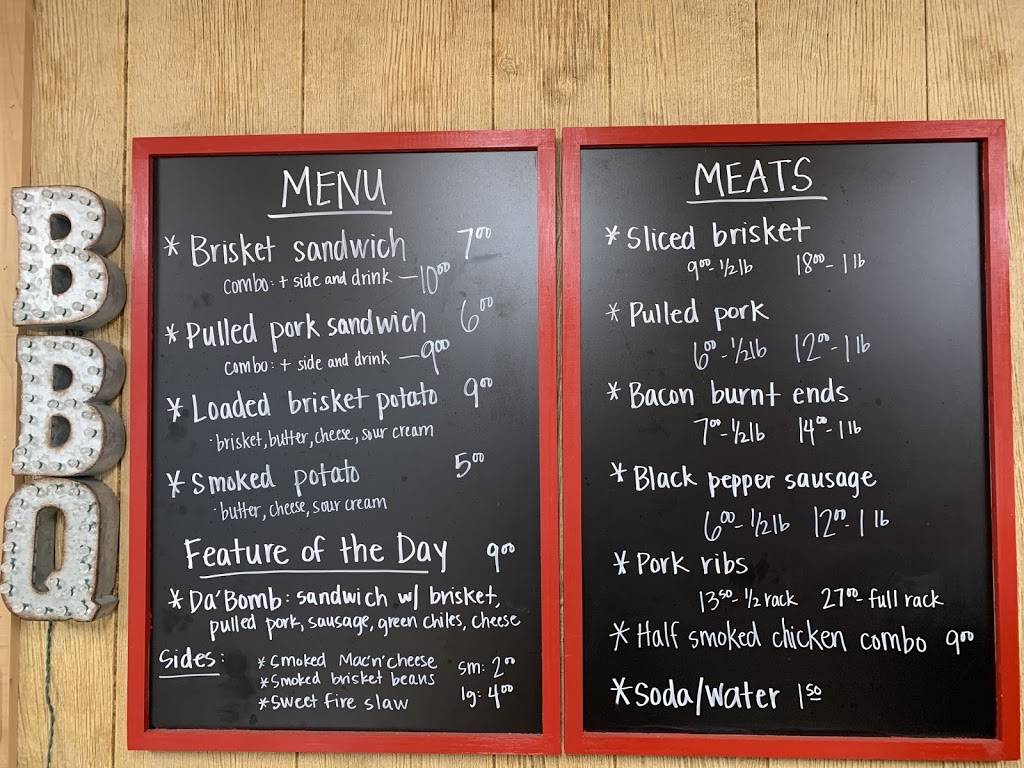 BBQ
MENU
* Brisket sandwich 7.00
combo: + side and drink — 10.00
* Pulled pork sandwich 6.00
combo: + side and drink — 9.00
* Loaded brisket potato 9.00
· brisket, butter, cheese, sour cream
* Smoked potato 5.00
· butter, cheese, sour cream
Feature of the Day 9.00
* Da'Bomb: sandwich w/ brisket,
pulled pork, sausage, green chiles, cheese
Sides: * Smoked Mac'n'cheese sm: 2.00
* Smoked brisket beans
* Sweet fire slaw lg: 4.00
MEATS
* Sliced brisket
9.00 - 1/2 lb 18.00 - 1 lb
* Pulled pork
6.00 - 1/2 lb 12.00 - 1 lb
* Bacon burnt ends
7.00 - 1/2 lb 14.00 - 1 lb
* Black pepper sausage
6.00 - 1/2 lb 12.00 - 1 lb
* Pork ribs
13.50 - 1/2 rack 27.00 - full rack
* Half smoked chicken combo 9.00
* Soda/Water 1.50